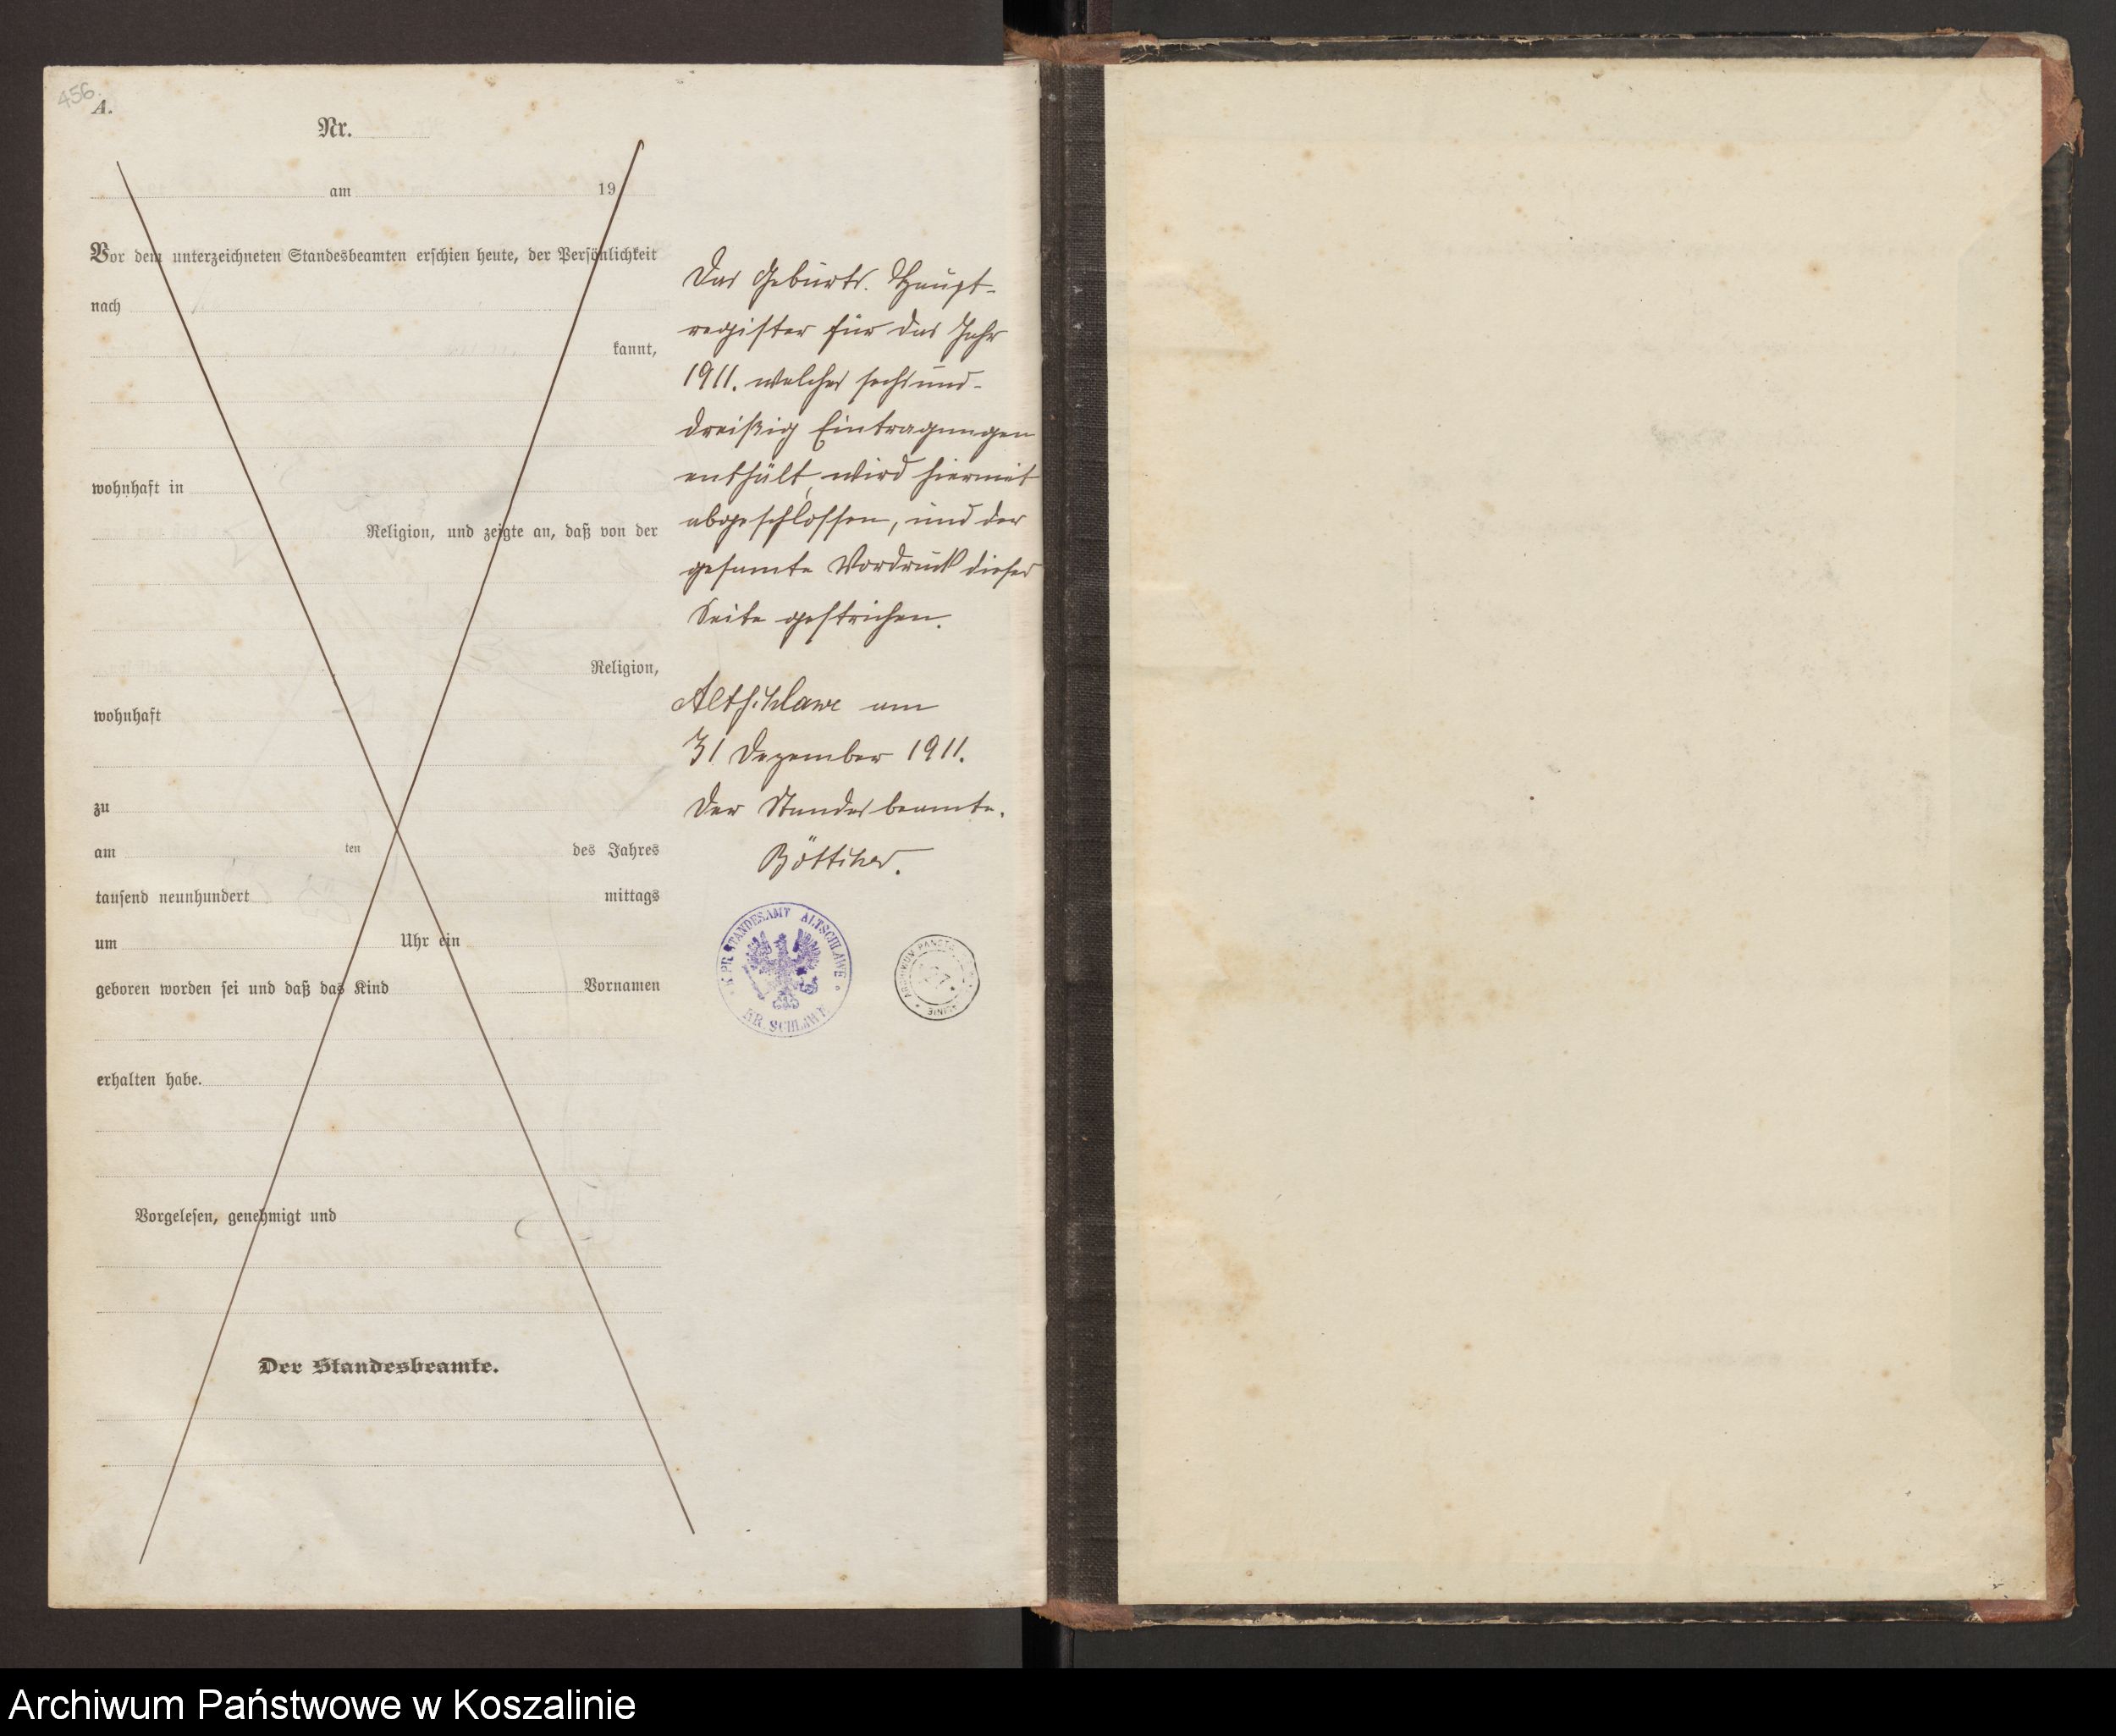 456.
A.
Nr.
am 19
Vor dem unterzeichneten Standesbeamten erschien heute, der Persönlichkeit
nach
kannt,
wohnhaft in
Religion, und zeigte an, daß von der
Religion,
wohnhaft
zu
am ten des Jahres
tausend neunhundert mittags
um Uhr ein
geboren worden sei und daß das Kind Vornamen
erhalten habe.
Vorgelesen, genehmigt und
Der Standesbeamte.
Das Geburts-Haupt-
register für das Jahr
1911. welches sechsund-
dreißig Eintragungen
enthält, wird hiermit
abgeschlossen, und der
gesamte Vordruck dieser
Seite gestrichen.
Altschlawe am
31 Dezember 1911.
Der Standesbeamte.
Böttcher.
K. PR. STANDESAMT ALTSCHLAWE
KR. SCHLAWE
ARCHIWUM PAŃSTW
Archiwum Państwowe w Koszalinie